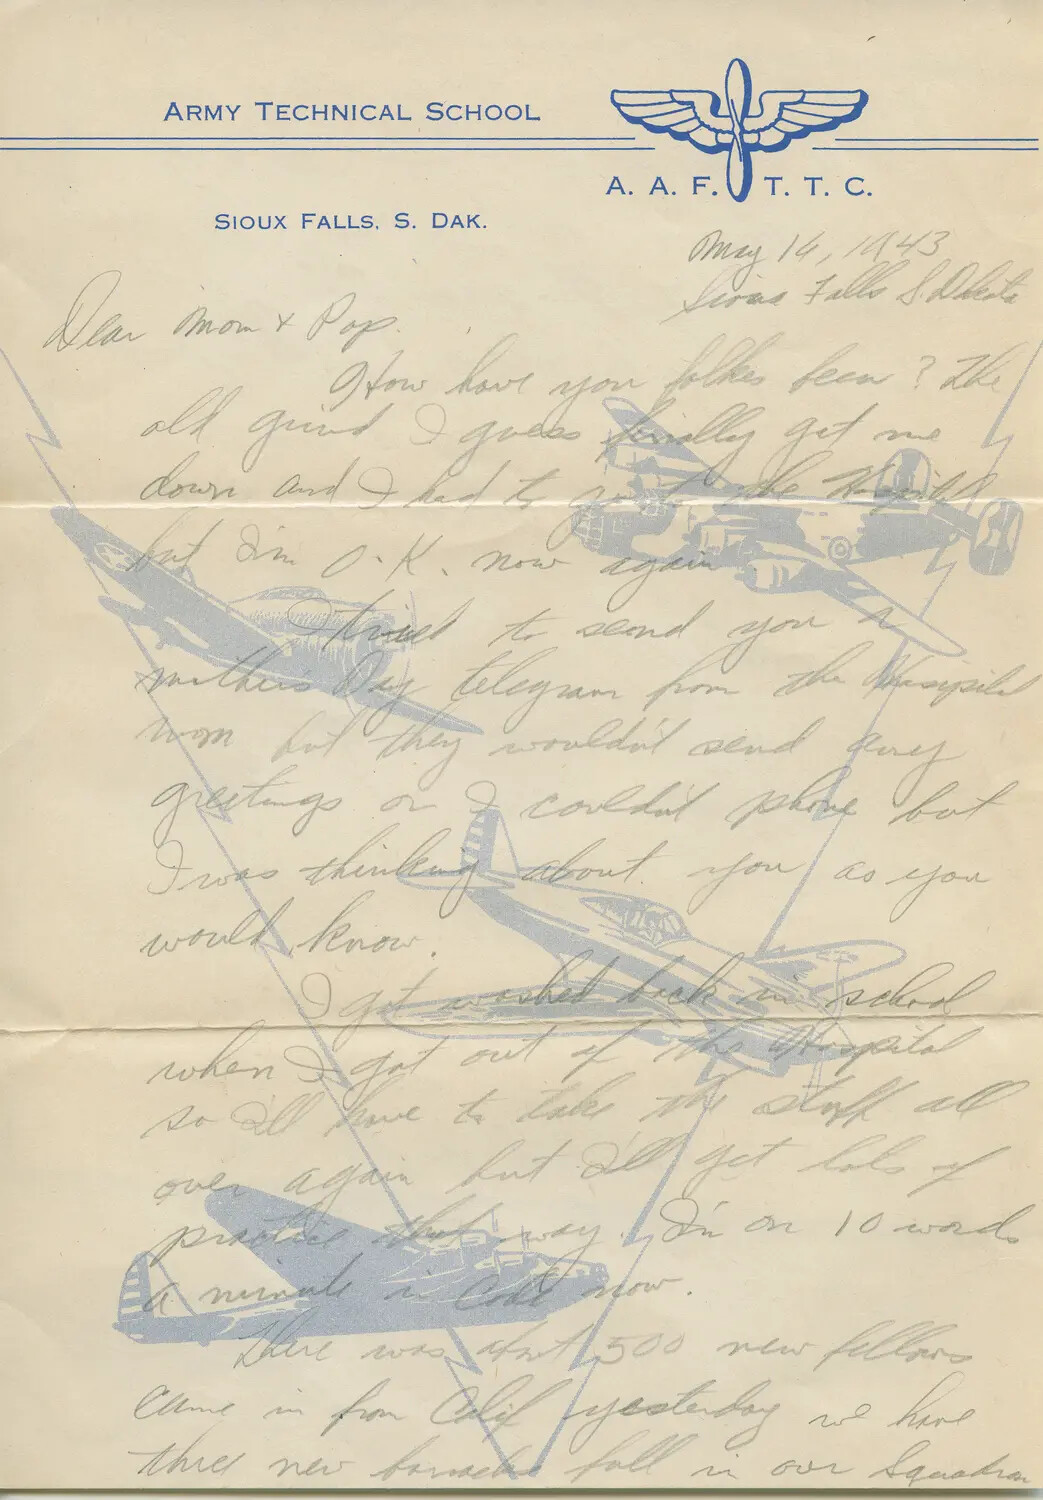 ARMY TECHNICAL SCHOOL
A. A. F. T. T. C.
SIOUX FALLS, S. DAK.
May 16, 1943
Sioux Falls S. Dakota
Dear Mom & Pop.
How have you folkes been? The
old grind I guess finally got me
down and I had to go to the Hospital
but I'm O.K. now again.
I tried to send you a
mother's Day telegram from the Hospital
mom but they wouldn't send any
greetings or I couldn't phone but
I was thinking about you as you
would know.
I got washed back in school
when I got out of the Hospital
so I'll have to take the stuff all
over again but I'll get lots of
practice that way. I'm on 10 words
a minute in code now.
There was about 500 new fellows
came in from Calif yesterday we have
three new barracks full in our Squadron